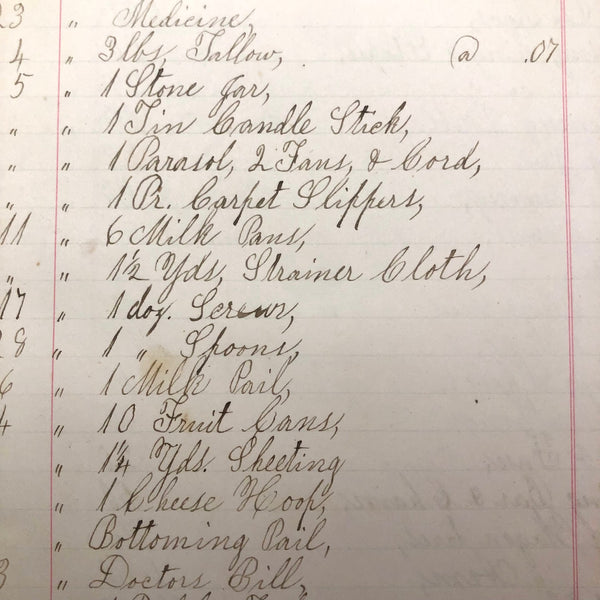 23 " Medicine,
4 " 3 lbs, Tallow, @ .07
5 " 1 Stone Jar,
" " 1 Tin Candle Stick,
" " 1 Parasol, 2 Fans, & Cord,
" " 1 Pr. Carpet Slippers,
11 " 6 Milk Pans,
" " 1½ Yds, Strainer Cloth,
17 " 1 doz. Screws,
28 " 1 " Spoons,
6 " 1 Milk Pail,
4 " 10 Fruit Cans,
" 1¼ Yds. Sheeting
" 1 Cheese Hoop,
" Bottoming Pail,
3 " Doctors Bill,